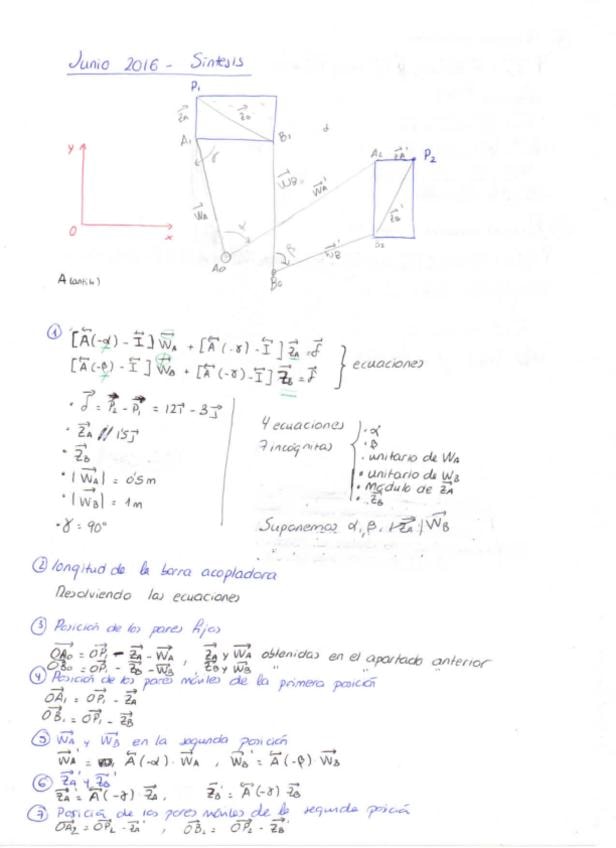 Junio 2016 - Síntesis
P₁
Z⃗A
Z⃗B
A₁
B₁
α
γ
W⃗A
W⃗B
W⃗A'
A₂
Z⃗A'
P₂
Z⃗B'
B₂
α
β
W⃗B'
A₀
B₀
y
O
x
① [A(-α) - I] W⃗A + [A(-γ) - I] Z⃗A = δ⃗
[A(-β) - I] W⃗B + [A(-γ) - I] Z⃗B = δ⃗
ecuaciones
• δ⃗ = P⃗₂ - P⃗₁ = 12i⃗ - 3j⃗
• Z⃗A // 1'5j⃗
• Z⃗B
• |W⃗A| = 0'5m
• |W⃗B| = 1m
• γ = 90°
4 ecuaciones
7 incógnitas
• α
• β
• unitario de WA
• unitario de WB
• módulo de Z⃗A
• Z⃗B
Suponemos α, β,
② longitud de la barra acopladora
Resolviendo las ecuaciones
③ Posición de los pares fijos
OA₀ = OP₁ - Z⃗A - W⃗A , Z⃗A y W⃗A obtenidas en el apartado anterior
OB₀ = OP₁ - Z⃗B - W⃗B Z⃗B y W⃗B " "
④ Posición de los pares móviles de la primera posición
OA₁ = OP₁ - Z⃗A
OB₁ = OP₁ - Z⃗B
⑤ W⃗A y W⃗B en la segunda posición
W⃗A' = A(-α) · W⃗A , W⃗B' = A(-β) · W⃗B
⑥ Z⃗A' y Z⃗B'
Z⃗A' = A(-γ) Z⃗A , Z⃗B' = A(-γ) Z⃗B
⑦ Posición de los pares móviles de la segunda posición
OA₂ = OP₂ - Z⃗A' , OB₂ = OP₂ - Z⃗B'